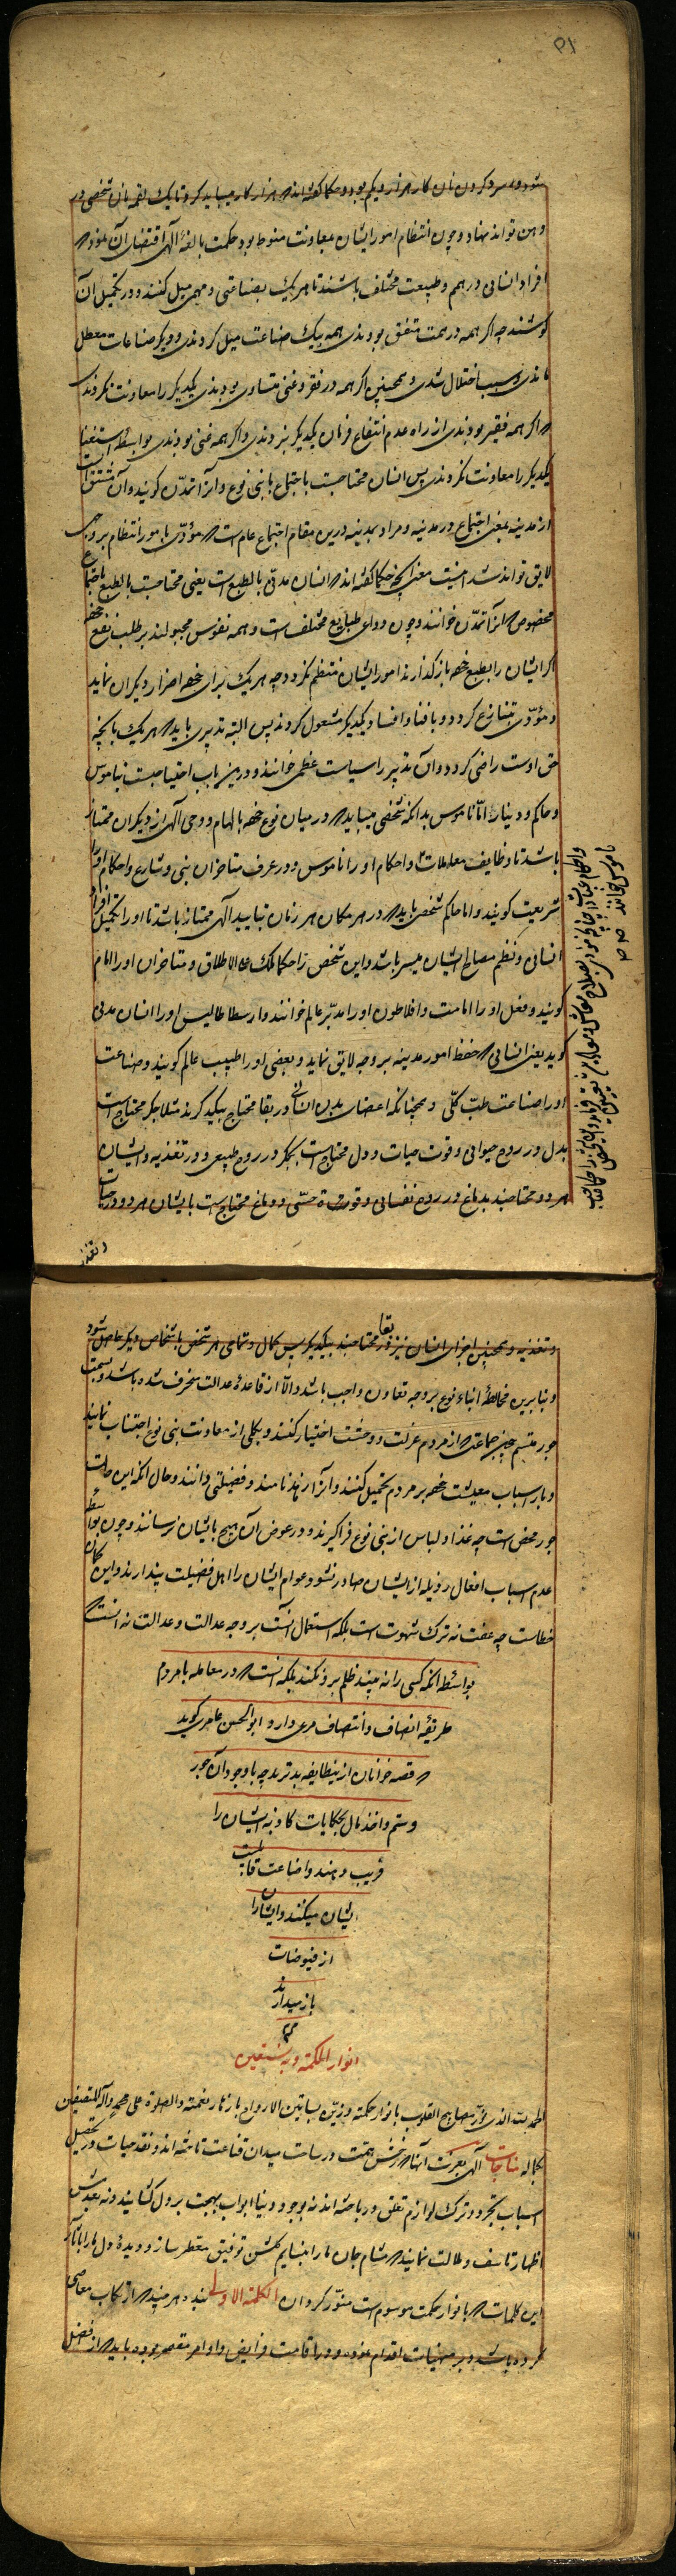 ۵۱
شود و سرد کردن نان کار هزار و یکم بود و حکما گفته‌اند که هزار کار میباید کرد تا یک لقمه نان شخصی در
دهن تواند نهاد و چون انتظام امور ایشان بمعاونت منوط بود حکمت بالغهٔ الٓهی اقتضای آن نمود که
افراد انسانی در همم و طبیعت مختلف باشند تا هر یک بصناعتی و مهمی میل کنند و در تکمیل آن
کوشند چه اگر همه در همت متفق بودندی همه بیک صناعت میل کردندی و دیگر صناعات معطل
ماندی و سبب اختلال شدی و همچنین اگر همه در فقر و غنی متساوی بودندی یکدیگر را معاونت نکردندی
که اگر همه فقیر بودندی از راه عدم انتفاع فرمان یکدیگر نبردندی و اگر همه غنی بودندی بواسطهٔ استغنا
یکدیگر را معاونت نکردندی پس انسان محتاجست باجتماع با بنی نوع و آنرا تمدّن گویند و آن مشتق است
از مدینه بمعنی اجتماع در مدینه و مراد بمدینه درین مقام اجتماع عام است که مؤدّی با مور انتظام بر وجهی
لایق تواند شد اینست معنی آنچه حکما گفته‌اند که انسان مدنی بالطبع است یعنی محتاجست بالطبع باجتماع
مخصوص که آنرا تمدّن خوانند و چون دواعی طبایع مختلف است و همه نفوس مجبولند بر طلب نفع خود
اگر ایشان را بطبع خود باز گذارند امور ایشان منتظم نگردد چه هر یک برای خود اضرار دیگران نماید
و مؤدّی بتنازع گردد و بافنا و افساد یکدیگر مشغول گردند پس البته تدبیری باید که هر یک بآنچه
حق اوست راضی گردد و آن تدبیر را سیاست عظمی خوانند و درین باب احتیاجست بناموس
و حاکم و دینار امّا ناموس بدانکه شخصی میباید که در میان نوع خود بالهام و وحی الٓهی از دیگران ممتاز
باشد تا وظایف معاملات و احکام او را ناموس و در عرف متاخران نبی و شارع و احکام او را
شریعت گویند و اما حاکم شخصی باید که در هر مکان هر زمان بتایید الٓهی ممتاز باشد تا او را تکمیل افراد
انسانی و نظم مصالح ایشان میسر باشد و این شخص را حکما ملک علی الاطلاق و متاخران او را امام
گویند و فعل او را امامت و افلاطون او را مدبّر عالم خوانند و ارسطاطالیس او را انسان مدنی
گوید یعنی انسانی که حفظ امور مدینه بر وجه لایق نماید و بعضی او را طبیب عالم گویند و صناعت
او را صناعت طبّ کلّی و همچنانکه اعضای بدن انسانی در بقا محتاج بیکدیگرند مثلا جگر محتاج است
بدل در روح حیوانی و قوت حیات و دل محتاج است بجگر در روح طبیعی و در تغذیه و ایشان
هر دو محتاجند بدماغ در روح نفسانی و قوت حسّی و دماغ محتاج است بایشان هر دو در حیات
و تغذیه
و تغذیه و همچنین اجزای انسان نیز در بقا محتاجند بیکدیگر پس کمال و تمامی هر شخص باشخاص دیگر حاصل شود
و بنا برین مخالطهٔ ابناء نوع بر وجه تعاون واجب باشد و الّا از قاعدهٔ عدالت منحرف شده باشد و بسمت
جور متسم چنین جماعتی که از مردم عزلت و وحشت اختیار کنند و بکلی از معاونت بنی نوع اجتناب نمایند
و بار اسباب معیشت خود بر مردم تحمیل کنند و آنرا زهد نامند و فضیلتی دانند و حال آنکه این حالت
جور محض است چه غذا و لباس از بنی نوع فرا گیرند و در عوض آن هیچ بایشان نرسانند و چون بواسطهٔ
عدم اسباب افعال رذیله از ایشان صادر نشود عوام ایشان را اهل فضیلت پندارند و این گمان
خطاست چه عفت نه ترک شهوت است بلکه استعمال آنست بر وجه عدالت و عدالت نه آنست که
بواسطهٔ آنکه کسی را نه بیند ظلم برو نکند بلکه آنست که در معامله با مردم
طریقهٔ انصاف و انتصاف مرعی دارد و ابو الحسن عامری گوید
که قصه خوانان ازین طایفه بدترند چه با وجود آن جور
و ستم و اخذ مال بحکایات کاذبه ایشان را
فریب دهند و اضاعت قابلیت
ایشان میکنند و ایشان را
از فیوضات
باز میدارند
انوار الحکمه و به نستعین
الحمد لله الذی نوّر مصابیح القلوب بانوار حکمته و زیّن بساتین الارواح بازهار نعمته والصلوة علی محمد و آله المقتبسین
بکماله مناجات الٓهی بعزت آنها که رخش همت در ساحت میدان قناعت تاخته‌اند و نقد حیات در تحصیل
اسباب تجرد و ترک لوازم تعلق در باخته‌اند نه بوجود دنیا ابواب بهجت بر دل گشایند و نه بعدمش
اظهار تاسف و ملالت نمایند که مشام جان ما را بنسایم گلشن توفیق معطر ساز و دیدهٔ دل ما را بآثار
این کلمات که بانوار حکمت موسوم است منوّر گردان الکلمة الاولی بنده هر چند که ارتکاب معاصی
کرده باشد و بر منهیات اقدام نموده و در اقامت فرایض و اوامر مقصر بوده باید که از فضل